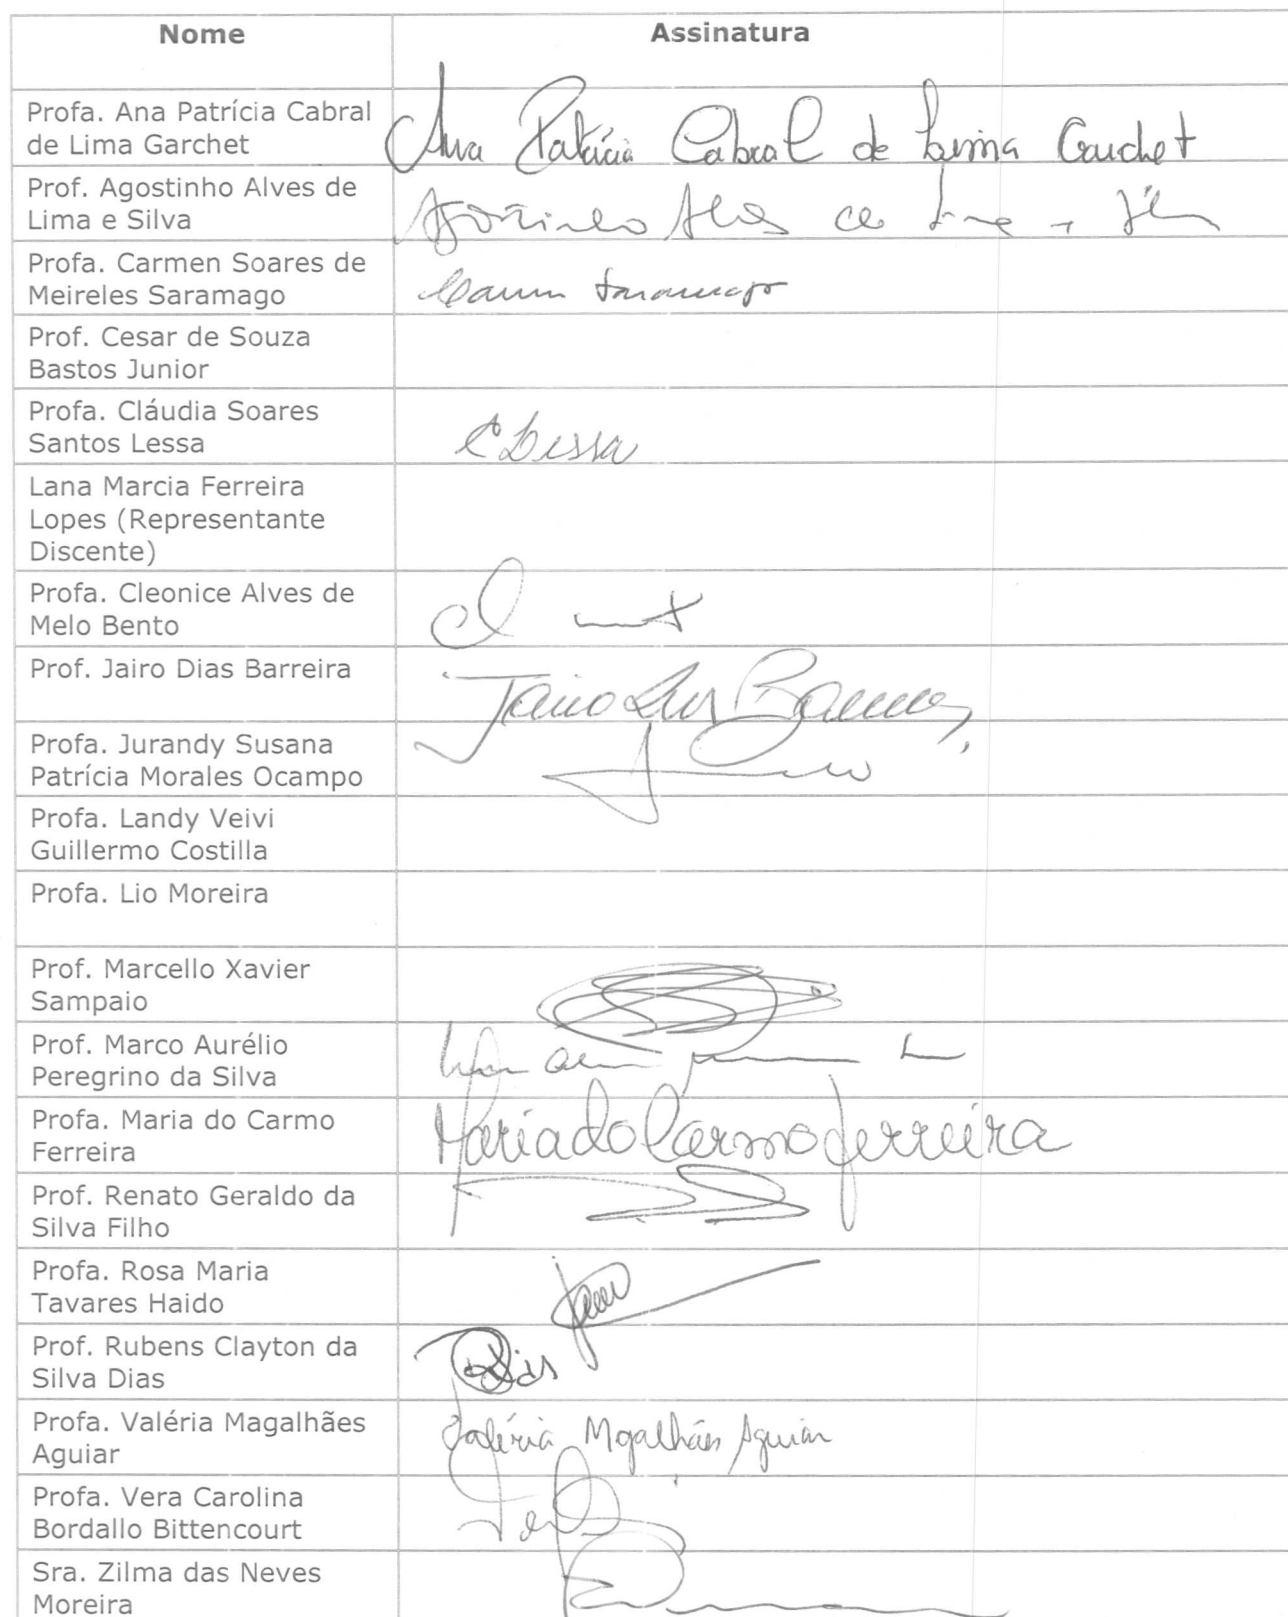 Nome Assinatura
Profa. Ana Patrícia Cabral
de Lima Garchet
Ana Patrícia Cabral de Lima Garchet
Prof. Agostinho Alves de
Lima e Silva
Agostinho Alves de Lima e Silva
Profa. Carmen Soares de
Meireles Saramago
Carmen Saramago
Prof. Cesar de Souza
Bastos Junior
Profa. Cláudia Soares
Santos Lessa
C Lessa
Lana Marcia Ferreira
Lopes (Representante
Discente)
Profa. Cleonice Alves de
Melo Bento
Prof. Jairo Dias Barreira
Jairo Dias Barreira
Profa. Jurandy Susana
Patrícia Morales Ocampo
Profa. Landy Veivi
Guillermo Costilla
Profa. Lio Moreira
Prof. Marcello Xavier
Sampaio
Prof. Marco Aurélio
Peregrino da Silva
Profa. Maria do Carmo
Ferreira
Maria do Carmo Ferreira
Prof. Renato Geraldo da
Silva Filho
Profa. Rosa Maria
Tavares Haido
Prof. Rubens Clayton da
Silva Dias
Dias
Profa. Valéria Magalhães
Aguiar
Valéria Magalhães Aguiar
Profa. Vera Carolina
Bordallo Bittencourt
Sra. Zilma das Neves
Moreira